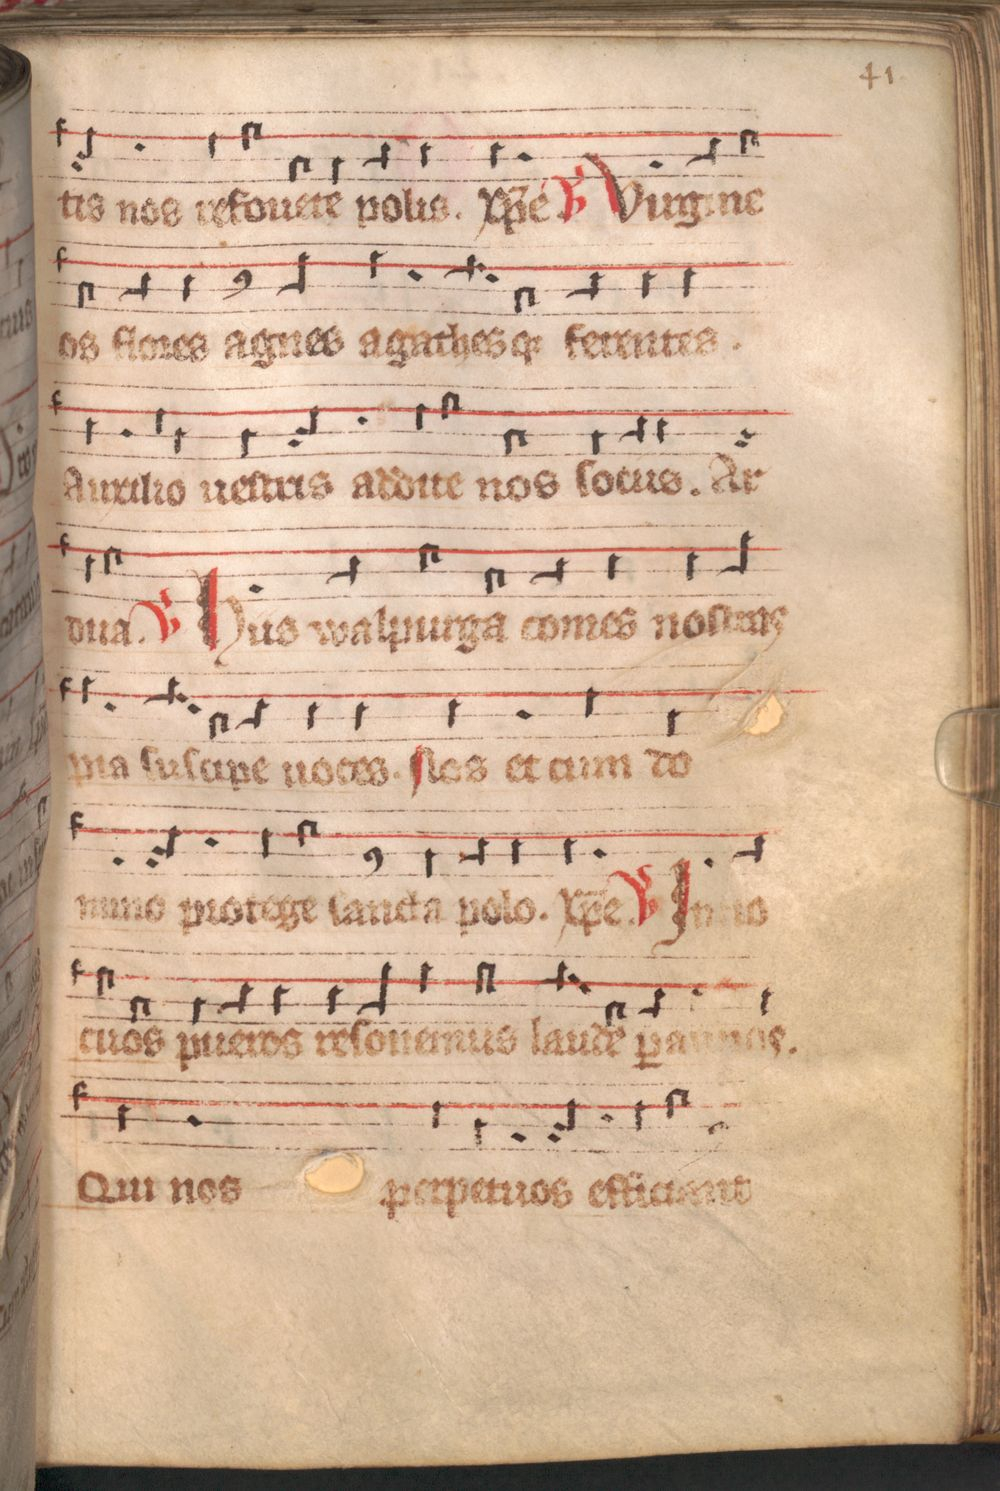 41
tis nos refouete polis. xp̄e V Virgine
os flores agnes agathesq; ferentes.
Auxilio uestris addite nos socus. Ar
dua. V Huis walpurga comes nostras
pia suscipe uoces. flos et cum do
mino protege sancta polo. xp̄e. V Inno
cuos pueros resonemus laude peannos.
Qui nos perpetuos efficiant